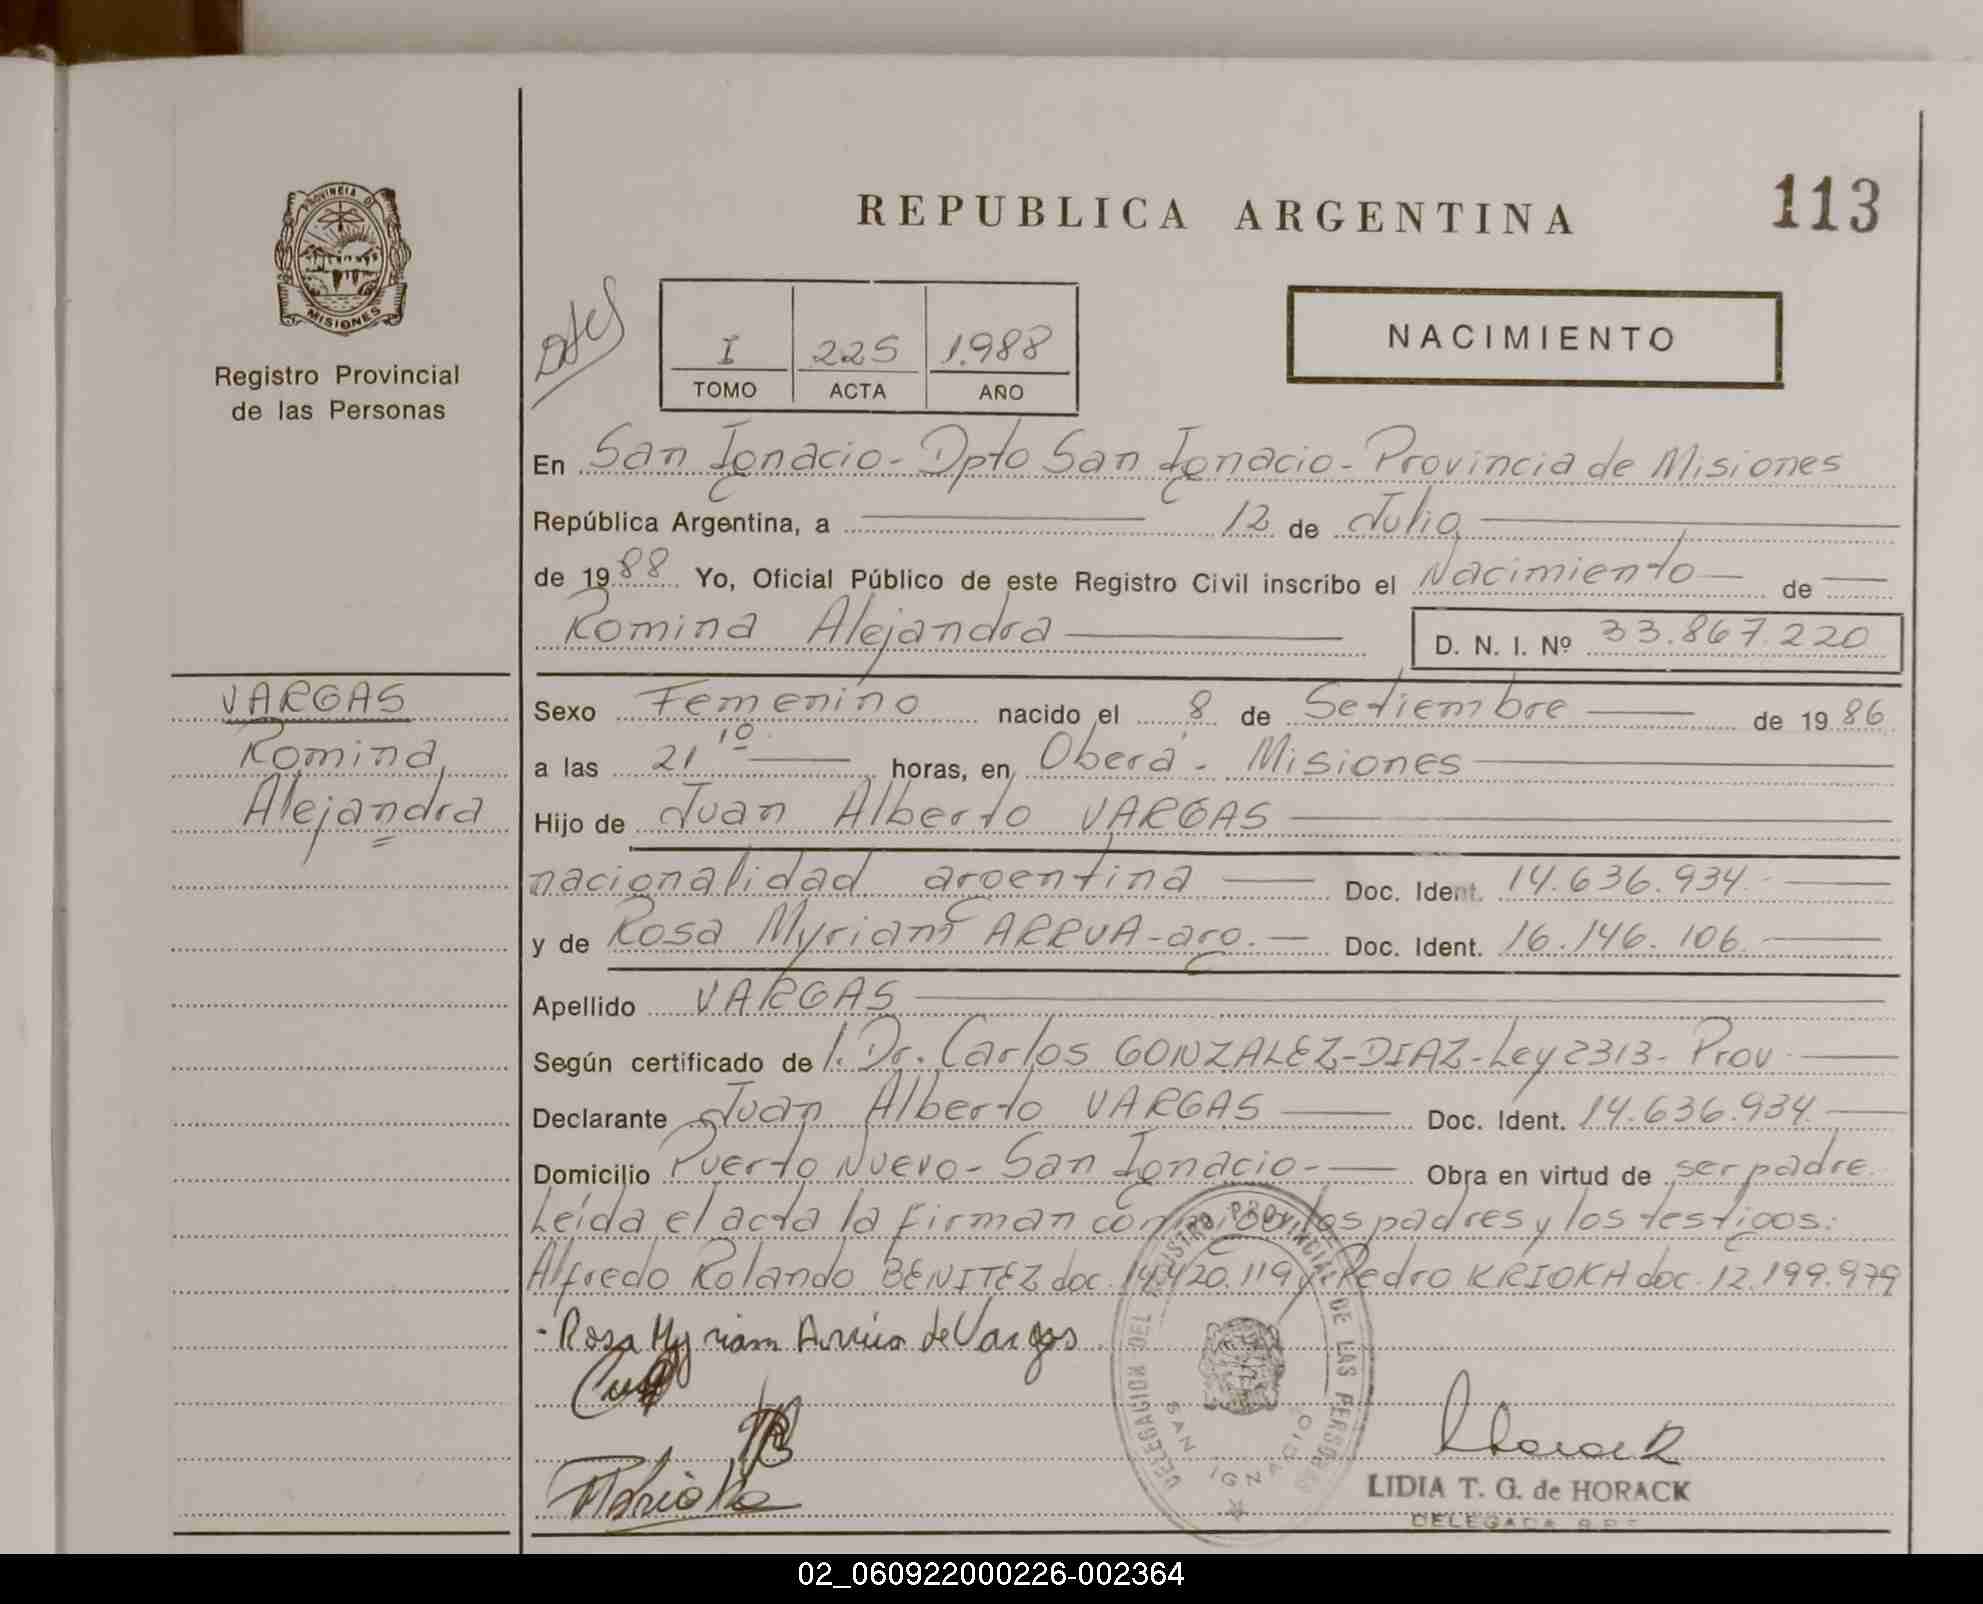 REPUBLICA ARGENTINA
113
PROVINCIA DE
MISIONES
Registro Provincial
de las Personas
I 225 1.988
TOMO ACTA AÑO
NACIMIENTO
En San Ignacio - Dpto San Ignacio - Provincia de Misiones
República Argentina, a 12 de Julio
de 1988 Yo, Oficial Público de este Registro Civil inscribo el Nacimiento de
Romina Alejandra
D. N. I. Nº 33.867.220
VARGAS
Romina
Alejandra
Sexo Femenino nacido el 8 de Setiembre de 1986
a las 21 10 horas, en Oberá - Misiones
Hijo de Juan Alberto VARGAS
nacionalidad argentina Doc. Ident. 14.636.934.
y de Rosa Myriam ARRUA - arg. Doc. Ident. 16.146.106.
Apellido VARGAS
Según certificado de l. Dr. Carlos GONZALEZ-DIAZ - Ley 2313 - Prov
Declarante Juan Alberto VARGAS Doc. Ident. 14.636.934.
Domicilio Puerto Nuevo - San Ignacio - Obra en virtud de ser padre.
Leída el acta la firman conmigo los padres y los testigos:
Alfredo Rolando BENITEZ doc. 14.420.119 y Pedro KRIOKA doc. 12.199.979
- Rosa Myriam Arrúa de Vargas
DELEGACION DEL REGISTRO PROVINCIAL DE LAS PERSONAS
SAN IGNACIO
LIDIA T. G. de HORACK
DELEGADA
02_060922000226-002364